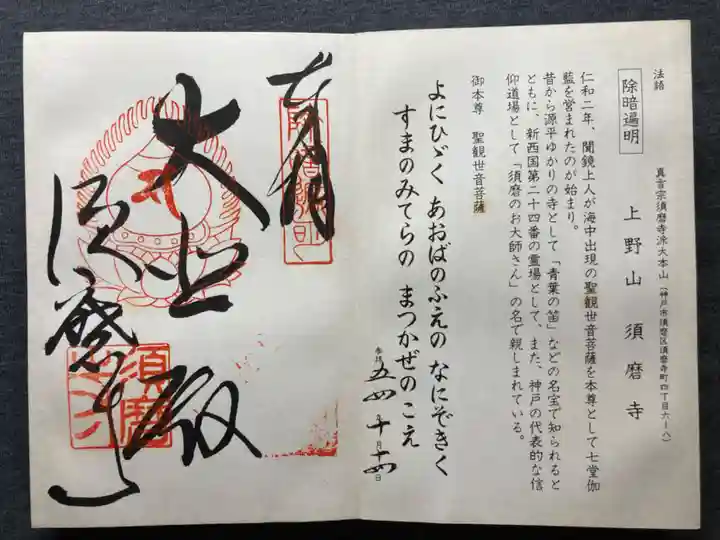 法語
除暗遍明
真言宗須磨寺派大本山（神戸市須磨区須磨寺町四丁目六ー八）
上野山 須磨寺
仁和二年、聞鏡上人が海中出現の聖観世音菩薩を本尊として七堂伽
藍を営まれたのが始まり。
昔から源平ゆかりの寺として「青葉の笛」などの名宝で知られると
ともに、新西国第二十四番の霊場として、また、神戸の代表的な信
仰道場として「須磨のお大師さん」の名で親しまれている。
御本尊 聖観世音菩薩
よにひゞく あおばのふえの なにぞきく
すまのみてらの まつかぜのこえ
参拝 年 十月 日
奉拝
除暗遍明
大悲殿
須磨寺